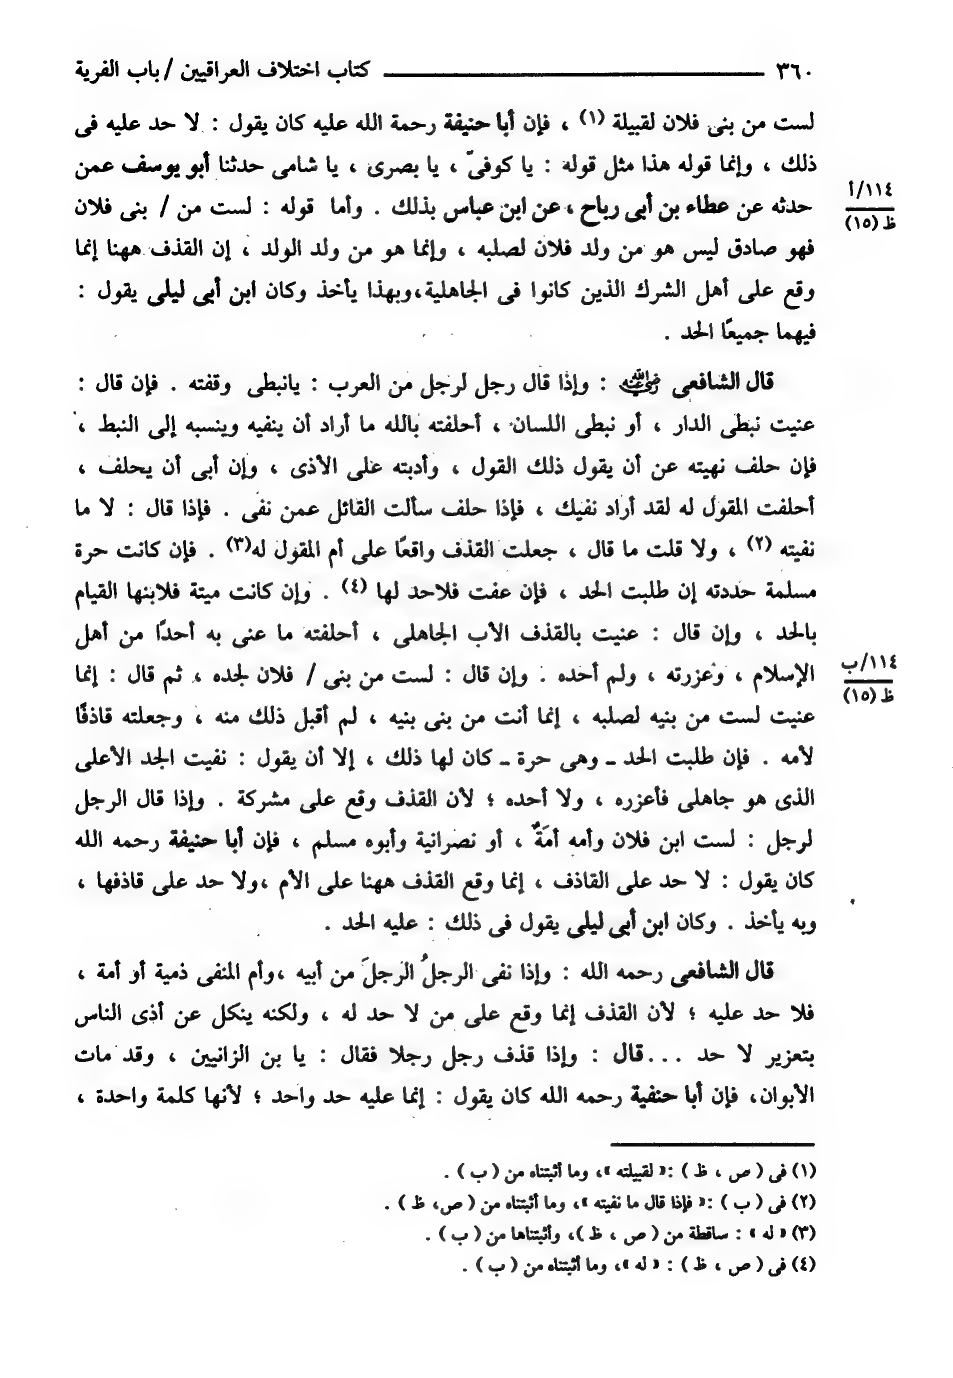 ٣٦٠ كتاب اختلاف العراقيين / باب الفرية
لست من بنى فلان لقبيلة (١) ، فإن أبا حنيفة رحمة الله عليه كان يقول : لا حد عليه فى
ذلك ، وإنما قوله هذا مثل قوله : يا كوفىّ ، يا بصرى ، يا شامى حدثنا أبو يوسف عمن
١١٤/أ
حدثه عن عطاء بن أبى رباح ، عن ابن عباس بذلك . وأما قوله : لست من / بنى فلان
ظ (١٥)
فهو صادق ليس هو من ولد فلان لصلبه ، وإنما هو من ولد الولد ، إن القذف ههنا إنما
وقع على أهل الشرك الذين كانوا فى الجاهلية،وبهذا يأخذ وكان ابن أبى ليلى يقول :
فيهما جميعًا الحد .
قال الشافعى رضي الله عنه : وإذا قال رجل لرجل من العرب : يانبطى وقفته . فإن قال :
عنيت نبطى الدار ، أو نبطى اللسان ، أحلفته بالله ما أراد أن ينفيه وينسبه إلى النبط ،
فإن حلف نهيته عن أن يقول ذلك القول ، وأدبته على الأذى ، وإن أبى أن يحلف ،
أحلفت المقول له لقد أراد نفيك ، فإذا حلف سألت القائل عمن نفى . فإذا قال : لا ما
نفيته (٢) ، ولا قلت ما قال ، جعلت القذف واقعًا على أم المقول له(٣) . فإن كانت حرة
مسلمة حددته إن طلبت الحد ، فإن عفت فلاحد لها (٤) . وإن كانت ميتة فلابنها القيام
بالحد ، وإن قال : عنيت بالقذف الأب الجاهلى ، أحلفته ما عنى به أحدًا من أهل
١١٤/ب
الإسلام ، وعزرته ، ولم أحده . وإن قال : لست من بنى / فلان لجده ، ثم قال : إنما
ظ (١٥)
عنيت لست من بنيه لصلبه ، إنما أنت من بنى بنيه ، لم أقبل ذلك منه ، وجعلته قاذفًا
لأمه . فإن طلبت الحد ـ وهى حرة ـ كان لها ذلك ، إلا أن يقول : نفيت الجد الأعلى
الذى هو جاهلى فأعزره ، ولا أحده ؛ لأن القذف وقع على مشركة . وإذا قال الرجل
لرجل : لست ابن فلان وأمه أمَةٌ ، أو نصرانية وأبوه مسلم ، فإن أبا حنيفة رحمه الله
كان يقول : لا حد على القاذف ، إنما وقع القذف ههنا على الأم ،ولا حد على قاذفها ،
وبه يأخذ . وكان ابن أبى ليلى يقول فى ذلك : عليه الحد .
قال الشافعى رحمه الله : وإذا نفى الرجلُ الرجلَ من أبيه ،وأم المنفى ذمية أو أمة ،
فلا حد عليه ؛ لأن القذف إنما وقع على من لا حد له ، ولكنه ينكل عن أذى الناس
بتعزير لا حد ...قال : وإذا قذف رجل رجلا فقال : يا بن الزانيين ، وقد مات
الأبوان، فإن أبا حنفية رحمه الله كان يقول : إنما عليه حد واحد ؛ لأنها كلمة واحدة ،
(١) فى ( ص ، ظ ) :« لقبيلته »، وما أثبتناه من ( ب ) .
(٢) فى ( ب ) :« فإذا قال ما نفيته »، وما أثبتناه من ( ص، ظ ) .
(٣) « له » : ساقطة من ( ص ، ظ )، وأثبتناها من ( ب ) .
(٤) فى ( ص ، ظ ) : « له »، وما أثبتناه من ( ب ) .